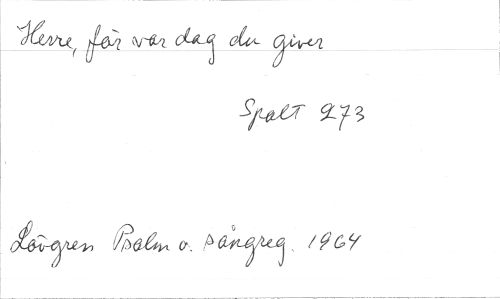 Herre, för var dag du giver
Spalt 273
Lövgren Psalm o. sångreg. 1964